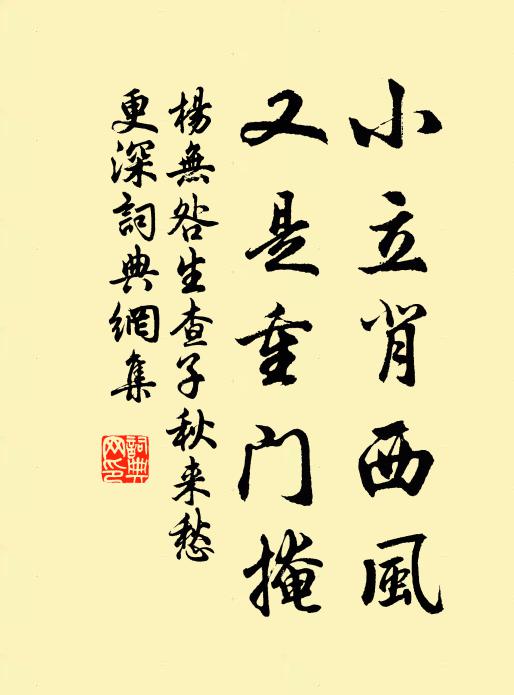 小立背西風
又是重门掩
楊無咎生查子秋来愁
更深詞典網集
詞典网印